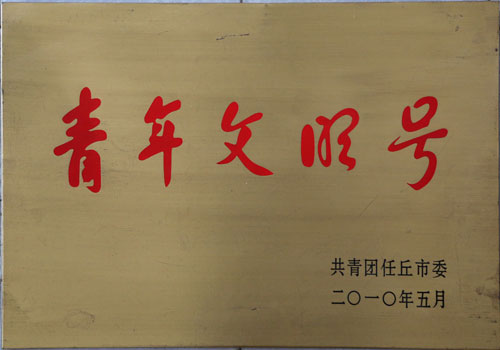 青年文明号
共青团任丘市委
二〇一〇年五月